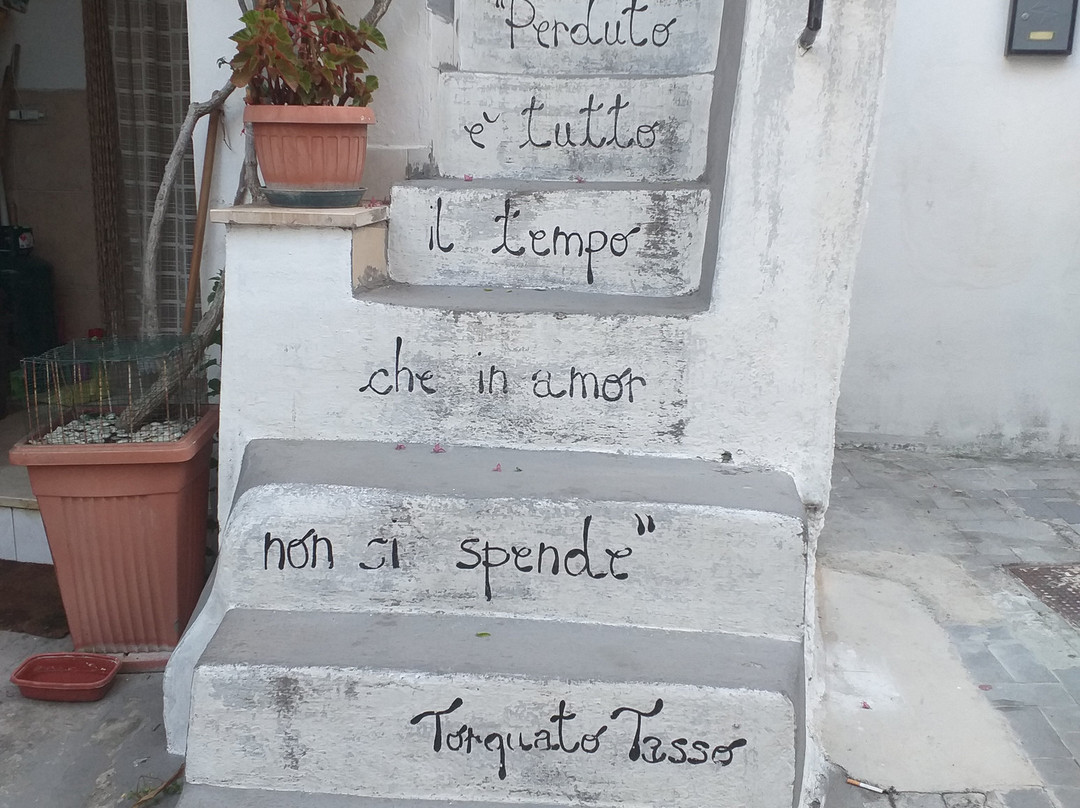 "Perduto
è tutto
il tempo
che in amor
non si spende"
Torquato Tasso